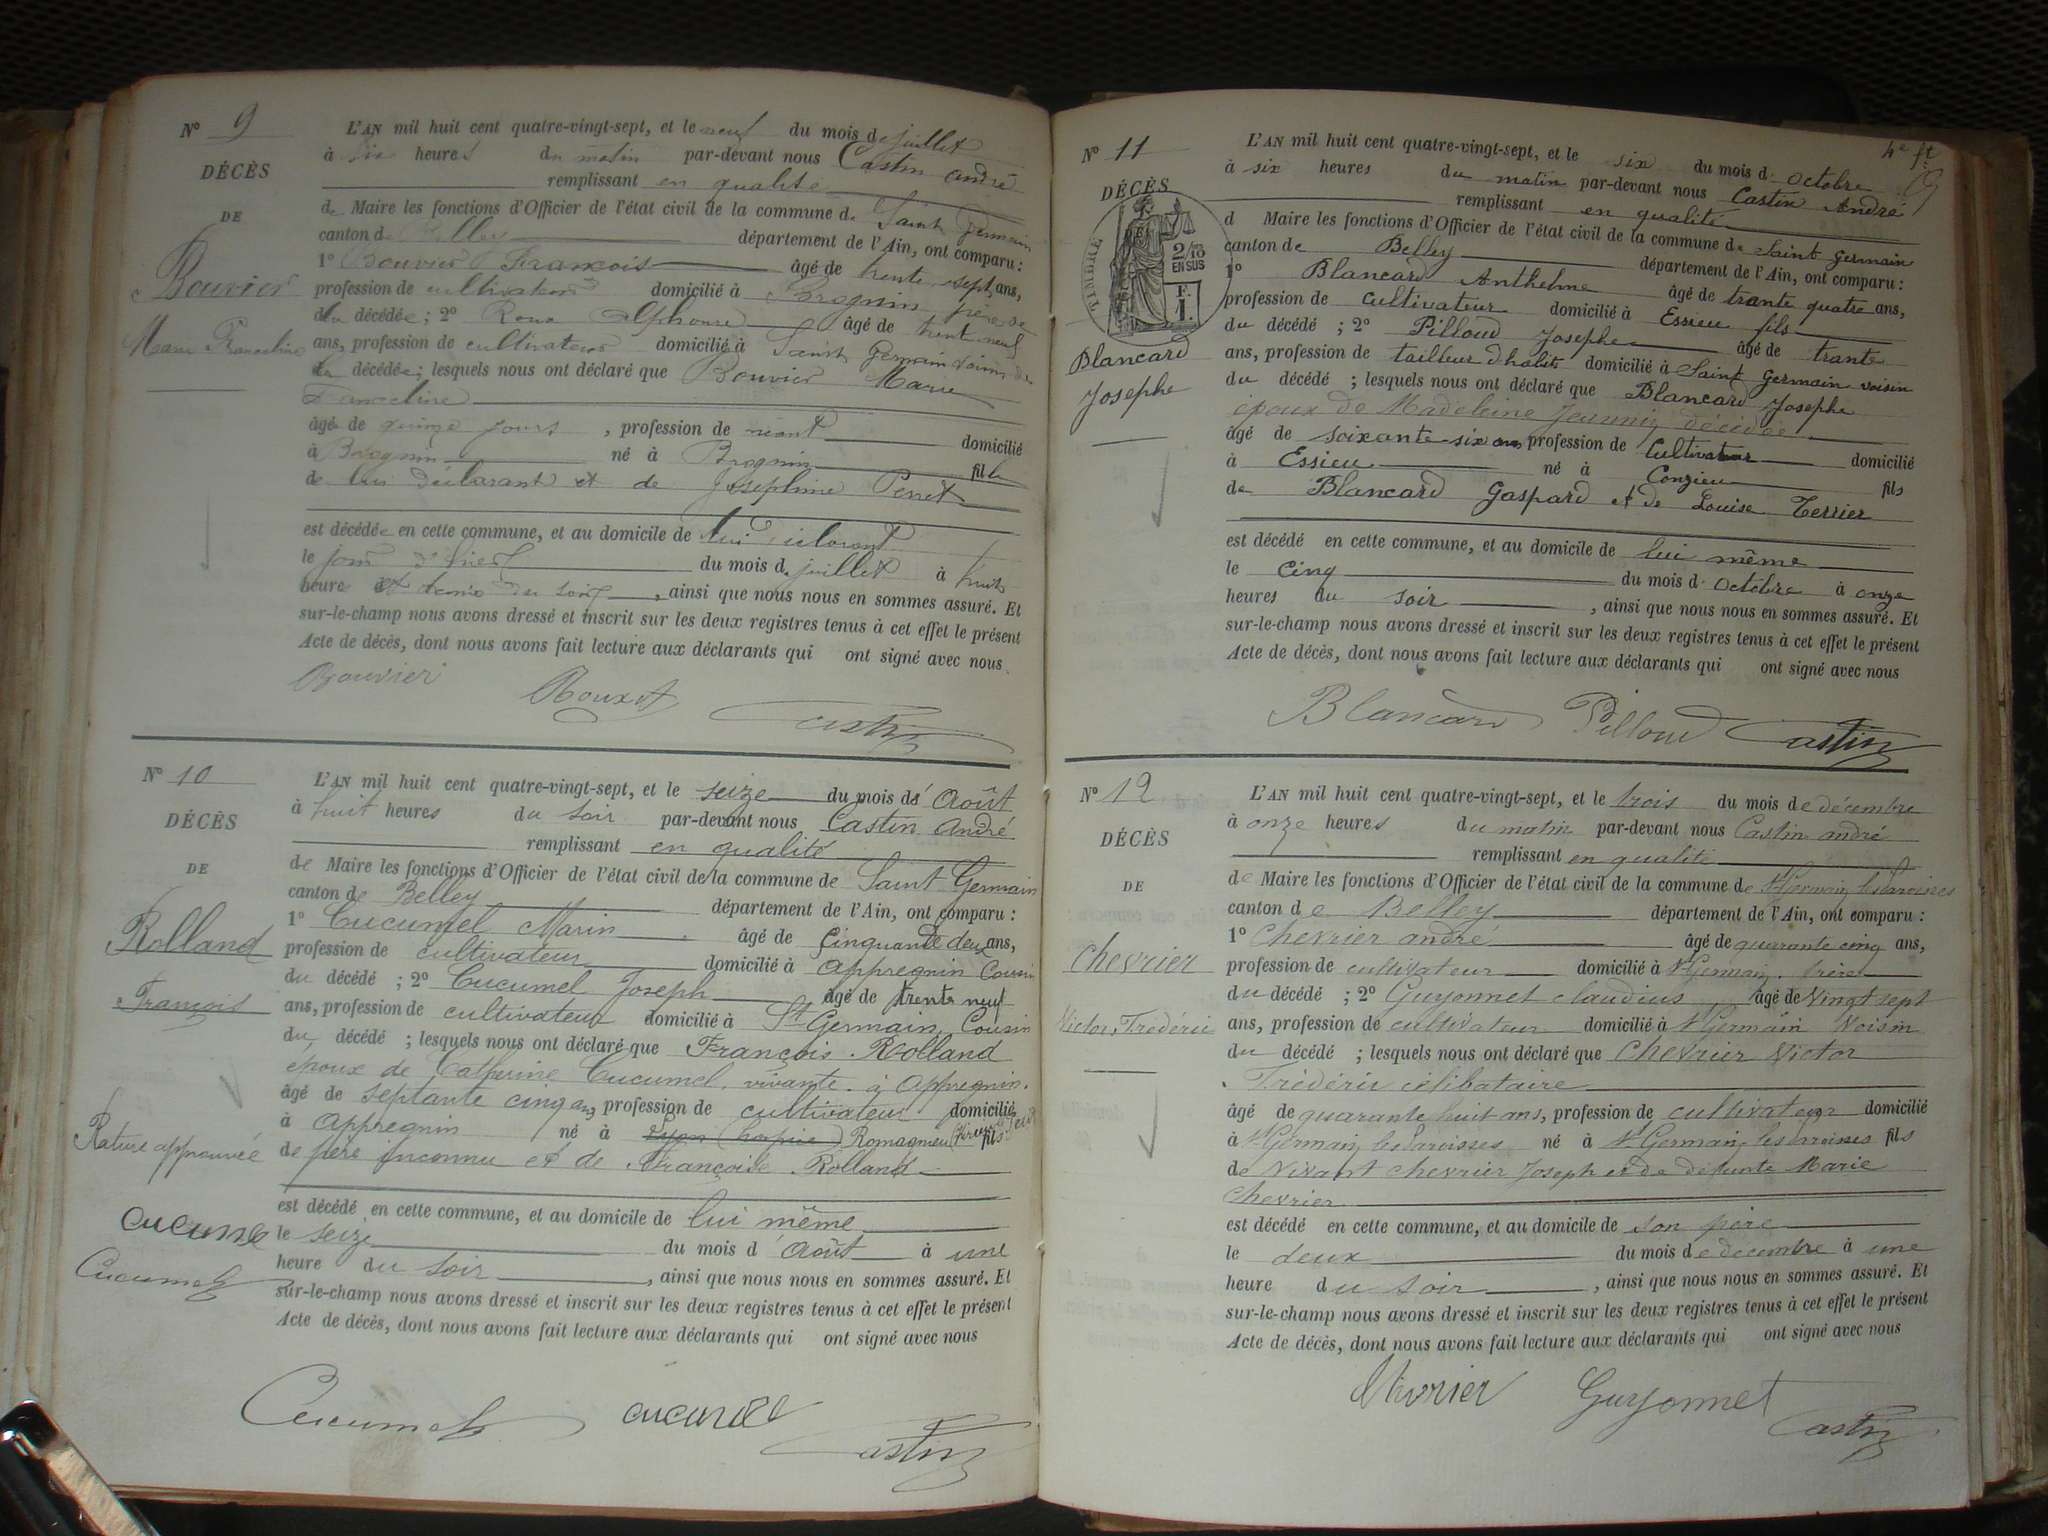 N° 9
DÉCÈS
DE
Bouvier
Marie Franceline
L'AN mil huit cent quatre-vingt-sept, et le neuf du mois de juillet
à six heures du matin par-devant nous Castin André
remplissant en qualité
de Maire les fonctions d'Officier de l'état civil de la commune de Saint Germain
canton de Belley département de l'Ain, ont comparu :
1° Bouvier François âgé de trente sept ans,
profession de cultivateur domicilié à Brognin père de
la décédée ; 2° Roux Alphonse âgé de trente neuf
ans, profession de cultivateur domicilié à Saint Germain voisin de
la décédée ; lesquels nous ont déclaré que Bouvier Marie
Franceline
âgé de quinze jours , profession de néant domicilié
à Brognin né à Brognin fille
de lui déclarant et de Joséphine Perret
est décédée en cette commune, et au domicile de lui déclarant
le jour d'hier du mois de juillet à huit
heure et demie du soir , ainsi que nous nous en sommes assuré. Et
sur-le-champ nous avons dressé et inscrit sur les deux registres tenus à cet effet le présent
Acte de décès, dont nous avons fait lecture aux déclarants qui ont signé avec nous.
Bouvier Roux A Castin
N° 10
DÉCÈS
DE
Rolland
François
Rature approuvée
Cucumel
Cucumel
L'AN mil huit cent quatre-vingt-sept, et le seize du mois d'Août
à huit heures du soir par-devant nous Castin André
remplissant en qualité
de Maire les fonctions d'Officier de l'état civil de la commune de Saint Germain
canton de Belley département de l'Ain, ont comparu :
1° Cucumel Marin âgé de Cinquante deux ans,
profession de cultivateur domicilié à Appregnin Cousin
du décédé ; 2° Cucumel Joseph âgé de trente neuf
ans, profession de cultivateur domicilié à St Germain Cousin
du décédé ; lesquels nous ont déclaré que François Rolland
époux de Catherine Cucumel vivante à Appregnin.
âgé de septante cinq ans profession de cultivateur domicilié
à Appregnin né à Lyon (hospice) Romagnieu fils
de père inconnu et de Françoise Rolland
est décédé en cette commune, et au domicile de lui même
le seize du mois d'Août à une
heure du soir , ainsi que nous nous en sommes assuré. Et
sur-le-champ nous avons dressé et inscrit sur les deux registres tenus à cet effet le présent
Acte de décès, dont nous avons fait lecture aux déclarants qui ont signé avec nous
Cucumel Cucumel Castin
4e ft
N° 11
DÉCÈS
TIMBRE
2/10
EN SUS
F.
1.
Blancard
Josephe
L'AN mil huit cent quatre-vingt-sept, et le six du mois d octobre
à six heures du matin par-devant nous Castin André
remplissant en qualité
d Maire les fonctions d'Officier de l'état civil de la commune de Saint Germain
canton de Belley département de l'Ain, ont comparu :
1° Blancard Anthelme âgé de trante quatre ans,
profession de cultivateur domicilié à Essieu fils
du décédé ; 2° Pilloud Josephe âgé de trante
ans, profession de tailleur d'habits domicilié à Saint Germain voisin
du décédé ; lesquels nous ont déclaré que Blancard Josephe
époux de Madeleine Jeannin décédée
âgé de soixante-six ans profession de Cultivateur domicilié
à Essieu né à Conzieu fils
de Blancard Gaspard et de Louise Terrier
est décédé en cette commune, et au domicile de lui même
le cinq du mois d octobre à onze
heures du soir , ainsi que nous nous en sommes assuré. Et
sur-le-champ nous avons dressé et inscrit sur les deux registres tenus à cet effet le présent
Acte de décès, dont nous avons fait lecture aux déclarants qui ont signé avec nous
Blancard Pilloud Castin
N° 12
DÉCÈS
DE
Chevrier
Victor Frédéric
L'AN mil huit cent quatre-vingt-sept, et le trois du mois de décembre
à onze heures du matin par-devant nous Castin andré
remplissant en qualité
de Maire les fonctions d'Officier de l'état civil de la commune de St Germain les Paroisses
canton de Belley département de l'Ain, ont comparu :
1° Chevrier andré âgé de quarante cinq ans,
profession de cultivateur domicilié à St Germain. frère
du décédé ; 2° Guyonnet claudius âgé de Vingt sept
ans, profession de cultivateur domicilié à St Germain Voisin
du décédé ; lesquels nous ont déclaré que Chevrier Victor
Frédéric célibataire
âgé de quarante huit ans, profession de cultivateur domicilié
à St Germain les Paroisses né à St Germain les Paroisses fils
de Vivant chevrier Joseph et de défunte Marie
Chevrier
est décédé en cette commune, et au domicile de son père
le deux du mois de décembre à une
heure du soir , ainsi que nous nous en sommes assuré. Et
sur-le-champ nous avons dressé et inscrit sur les deux registres tenus à cet effet le présent
Acte de décès, dont nous avons fait lecture aux déclarants qui ont signé avec nous
Chevrier Guyonnet Castin